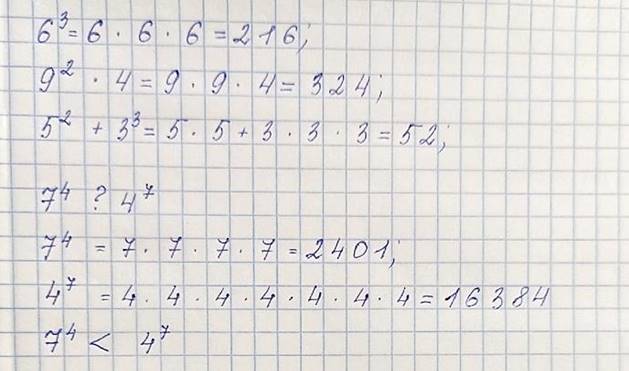 6³ = 6 · 6 · 6 = 216;
9² · 4 = 9 · 9 · 4 = 324;
5² + 3³ = 5 · 5 + 3 · 3 · 3 = 52;
7⁴ ? 4⁷
7⁴ = 7 · 7 · 7 · 7 = 2401;
4⁷ = 4 · 4 · 4 · 4 · 4 · 4 · 4 = 16384
7⁴ < 4⁷